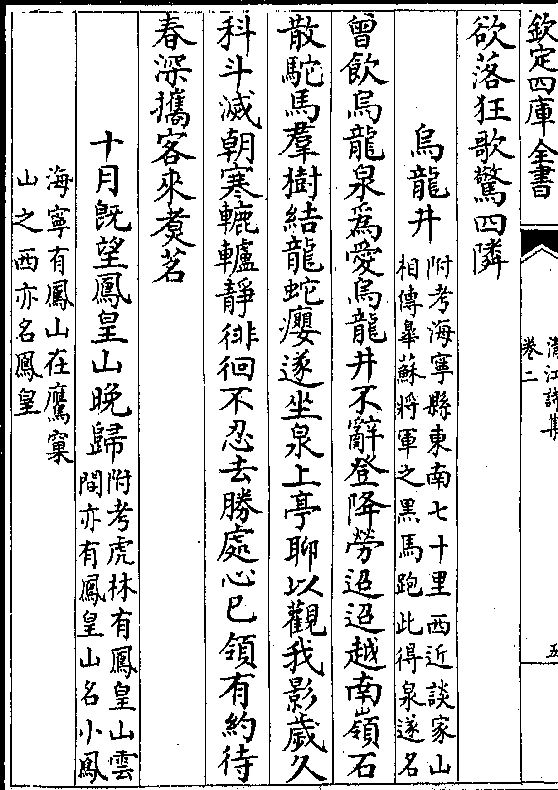 欽定四庫全書
清江詩集
卷二
五
欲落狂歌驚四隣
烏龍井附考海寧縣東南七十里西近談家山
相傳畢蘇將軍之黑馬跑此得泉遂名
曾飲烏龍泉爲愛烏龍井不辭登降勞迢迢越南嶺石
散駝馬羣樹結龍蛇癭遂坐泉上亭聊以觀我影歲久
科斗滅朝寒轆轤靜徘徊不忍去勝處心已領有約待
春深攜客來煑茗
十月既望鳳皇山晚歸附考虎林有鳳皇山雲
間亦有鳳皇山名小鳳
海寧有鳳山在鷹窠
山之西亦名鳳皇